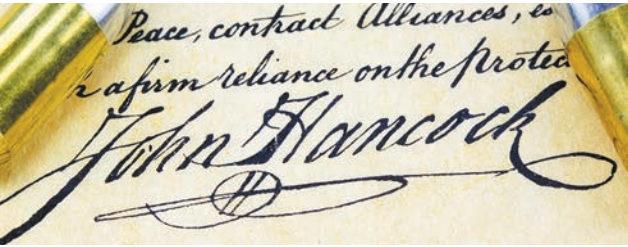 Peace, contract Alliances, es
a firm reliance on the Protec
John Hancock